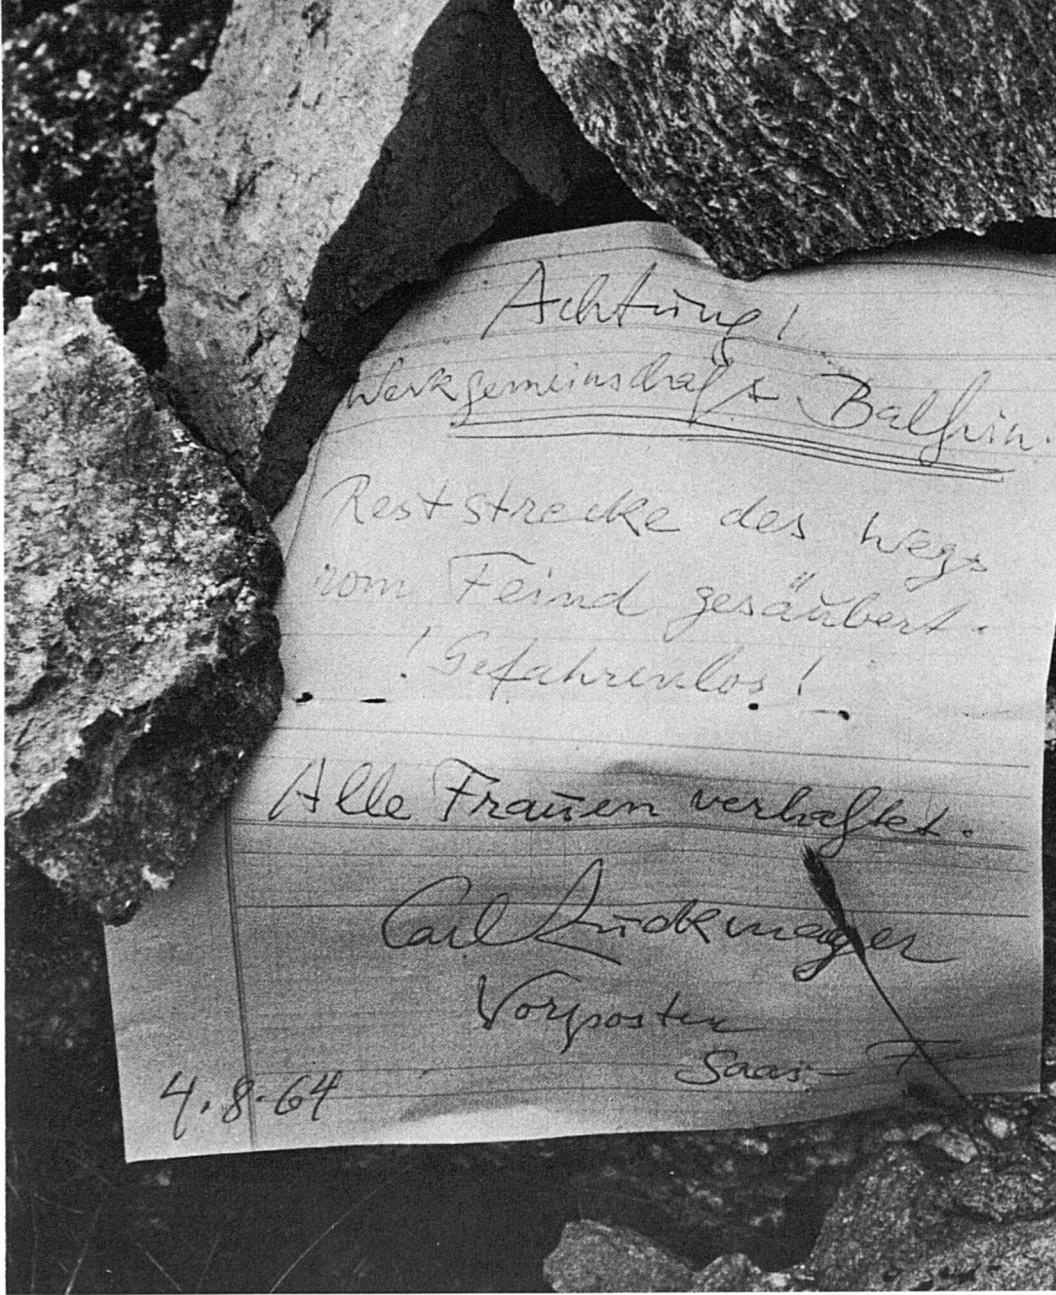 Achtung!
Werkgemeinschaft Balfrin.
Reststrecke des Wegs
vom Feind gesäubert.
! Gefahrenlos!
Alle Frauen verhaftet.
Carl Zuckmayer
Vorposten
Saas-F
4.8.64